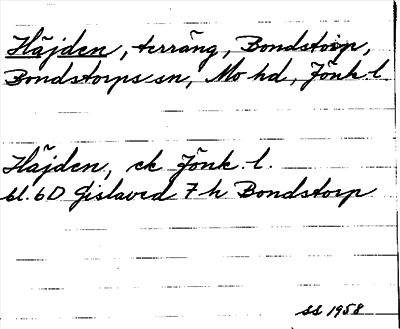 Häjden, terräng, Bondstorp,
Bondstorps sn, Mo hd, Jönk. l.
Häjden, ek Jönk. l.
bl. 6D Gislaved 7 h Bondstorp
SS 1958